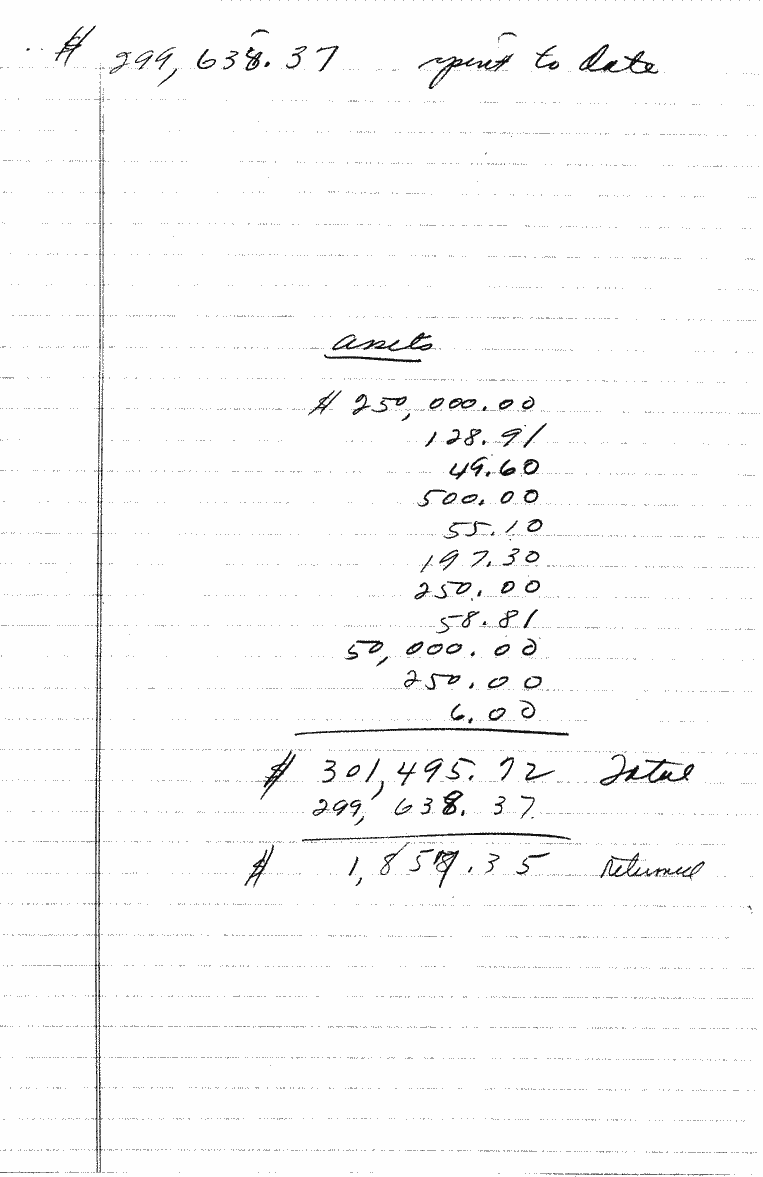 $ 299,638.37 spent to date
assets
$ 250,000.00
128.91
49.60
500.00
55.10
197.30
250.00
58.81
50,000.00
250.00
6.00
$ 301,495.72 Total
299,638.37
$ 1,857.35 Returned